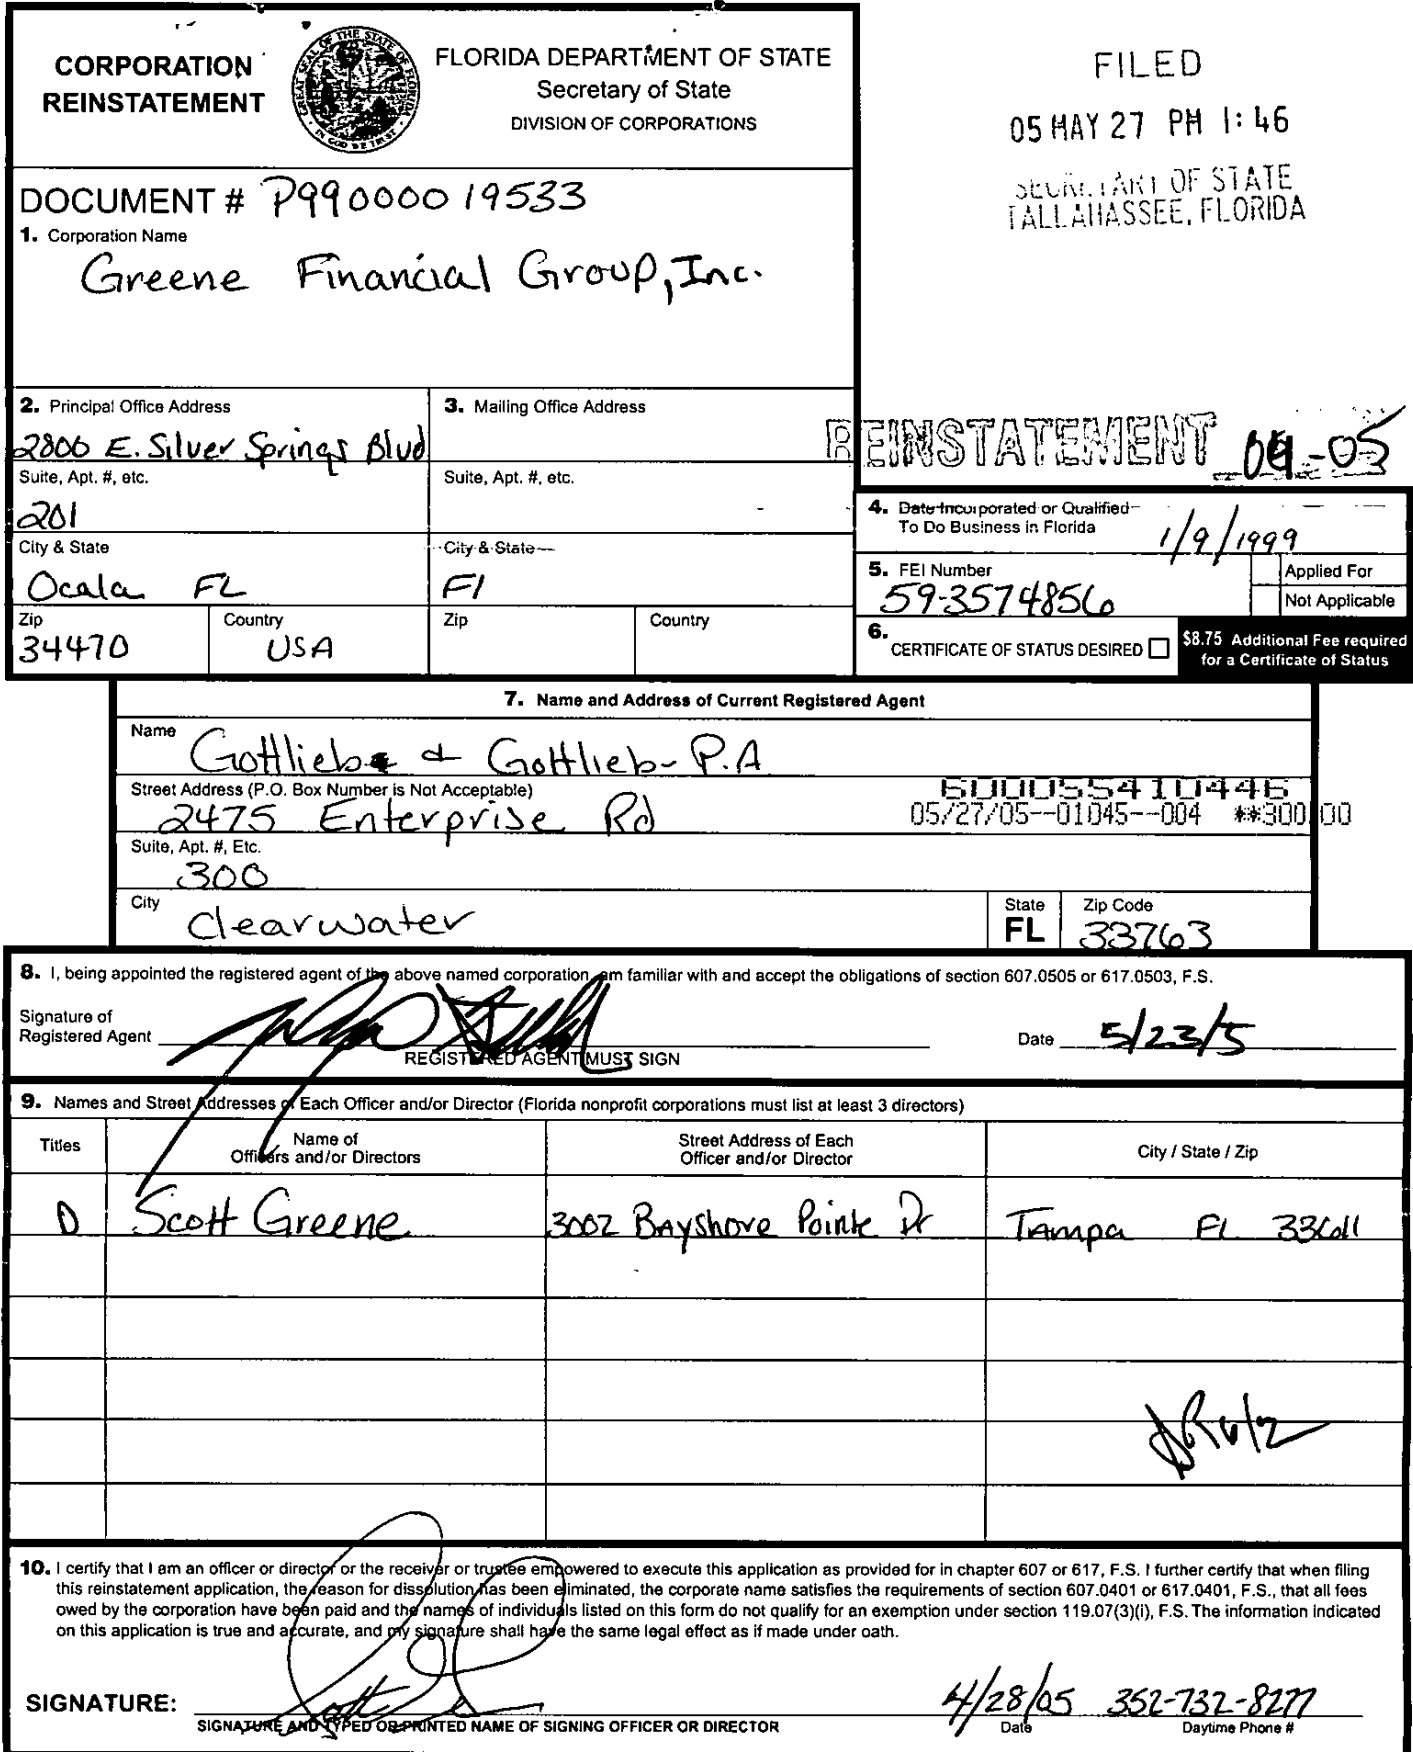 CORPORATION
REINSTATEMENT
GREAT SEAL OF THE STATE OF FLORIDA
IN GOD WE TRUST
FLORIDA DEPARTMENT OF STATE
Secretary of State
DIVISION OF CORPORATIONS
FILED
05 MAY 27 PM 1:46
SECRETARY OF STATE
TALLAHASSEE, FLORIDA
DOCUMENT # P99000019533
1. Corporation Name
Greene Financial Group, Inc.
2. Principal Office Address
2800 E. Silver Springs Blvd
Suite, Apt. #, etc.
201
City & State
Ocala FL
Zip
34470
Country
USA
3. Mailing Office Address
Suite, Apt. #, etc.
City & State
Fl
Zip
Country
REINSTATEMENT 04-05
4. Date Incorporated or Qualified
To Do Business in Florida
1/9/1999
5. FEI Number
59-3574856
Applied For
Not Applicable
6. CERTIFICATE OF STATUS DESIRED
$8.75 Additional Fee required
for a Certificate of Status
7. Name and Address of Current Registered Agent
Name
Gottlieb & Gottlieb P.A
Street Address (P.O. Box Number is Not Acceptable)
2475 Enterprise Rd
600055410446
05/27/05--01045--004 **300.00
Suite, Apt. #, Etc.
300
City
Clearwater
State
FL
Zip Code
33763
8. I, being appointed the registered agent of the above named corporation, am familiar with and accept the obligations of section 607.0505 or 617.0503, F.S.
Signature of
Registered Agent
REGISTERED AGENT MUST SIGN
Date 5/23/5
9. Names and Street Addresses of Each Officer and/or Director (Florida nonprofit corporations must list at least 3 directors)
Titles
Name of
Officers and/or Directors
Street Address of Each
Officer and/or Director
City / State / Zip
D Scott Greene 3002 Bayshore Pointe Dr Tampa FL 33611
10. I certify that I am an officer or director or the receiver or trustee empowered to execute this application as provided for in chapter 607 or 617, F.S. I further certify that when filing
this reinstatement application, the reason for dissolution has been eliminated, the corporate name satisfies the requirements of section 607.0401 or 617.0401, F.S., that all fees
owed by the corporation have been paid and the names of individuals listed on this form do not qualify for an exemption under section 119.07(3)(i), F.S. The information indicated
on this application is true and accurate, and my signature shall have the same legal effect as if made under oath.
SIGNATURE:
SIGNATURE AND TYPED OR PRINTED NAME OF SIGNING OFFICER OR DIRECTOR
4/28/05 352-732-8277
Date
Daytime Phone #